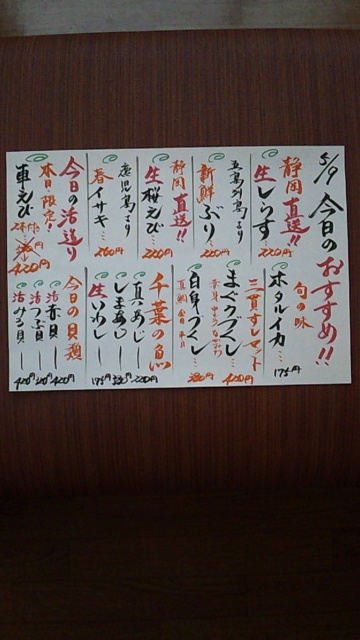 5/9 今日のおすすめ!!
静岡直送!!
生しらす…220円
五島列島より
新鮮ぶり…220円
静岡直送!!
生桜えび…220円
鹿児島より
春イサキ…260円
今日の活造り
本日限定!
車えび
420円
旬の味
ホタルイカ…175円
三貫すしマット
まぐろづくし…400円
白身づくし…380円
千葉の魚
真あじ―220円
しまあじ―330円
生いわし―175円
今日の貝類
活赤貝―400円
活つぶ貝
活みる貝―400円